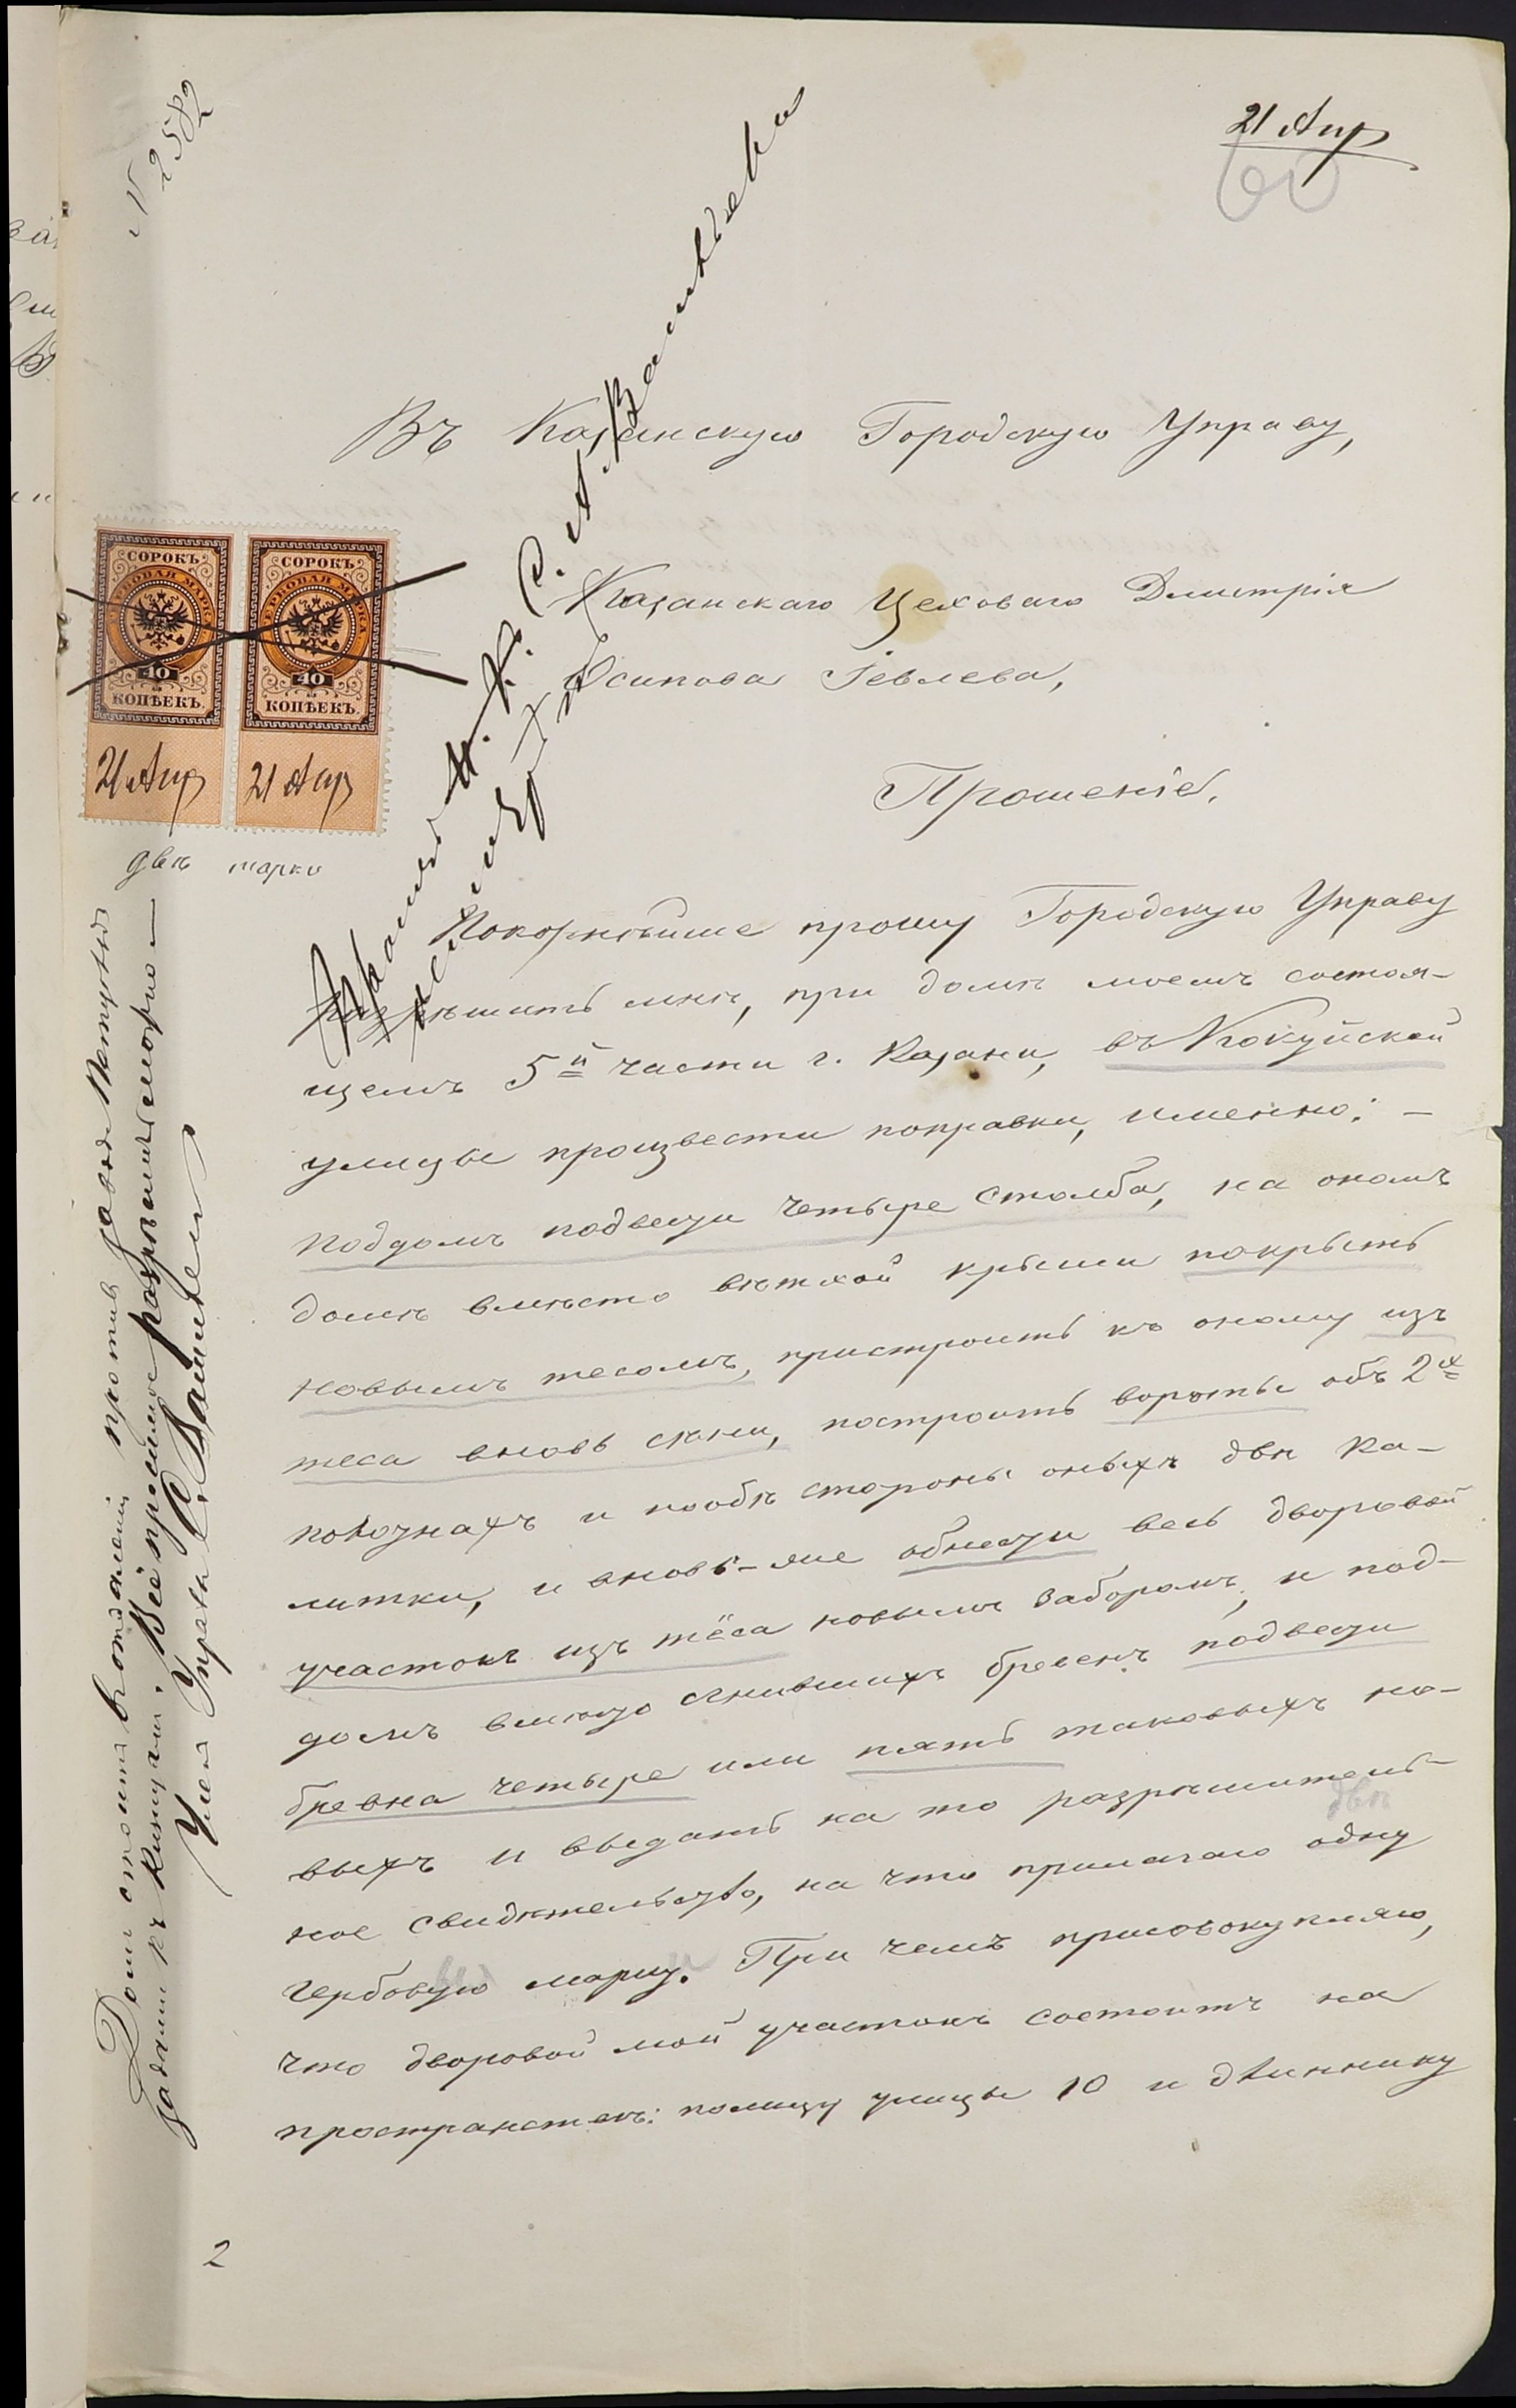 21 Апр
60
N 2582
Въ Казанскую Городскую Управу,
Казанскаго Цеховаго Дмитрія
Осипова Іевлева,
Прошеніе.
СОРОКЪ
ГЕРБОВАЯ МАРКА
40
КОПѢЕКЪ.
21 Апр
СОРОКЪ
ГЕРБОВАЯ МАРКА
40
КОПѢЕКЪ.
21 Апр
двѣ марки
Покорнѣйше прошу Городскую Управу
разрѣшить мнѣ, при домѣ моемъ состоя-
щемъ 5й части г. Казани, въ Кокуйской
улицы произвести поправки, именно: -
поддомъ подвести четыре столба, на ономъ
домѣ вмѣсто ветхой крыши покрыть
новымъ тесомъ, пристроить къ оному изъ
теса вновь сѣни, построить вороты объ 2х
полотнахъ и пообѣ стороны оныхъ двѣ ка-
литки, и вновь-же обнести весь дворовой
участокъ изъ тёса новымъ заборомъ, и под-
домъ вмѣсто сгнившихъ бревенъ подвести
бревна четыре или пять таковыхъ но-
выхъ и выдать на то разрѣшитель-
двѣ
ное свидѣтельство, на что прилагаю одну
гербовую марку. При чемъ присовокупляю,
что дворовой мой участокъ состоитъ на
пространствѣ: полицу улицы 10 и длиннику
Домъ стоитъ въ отдаленіи против
задами къ Кицкамъ. Всё просимое разрѣшить можно —
Член Управы
2